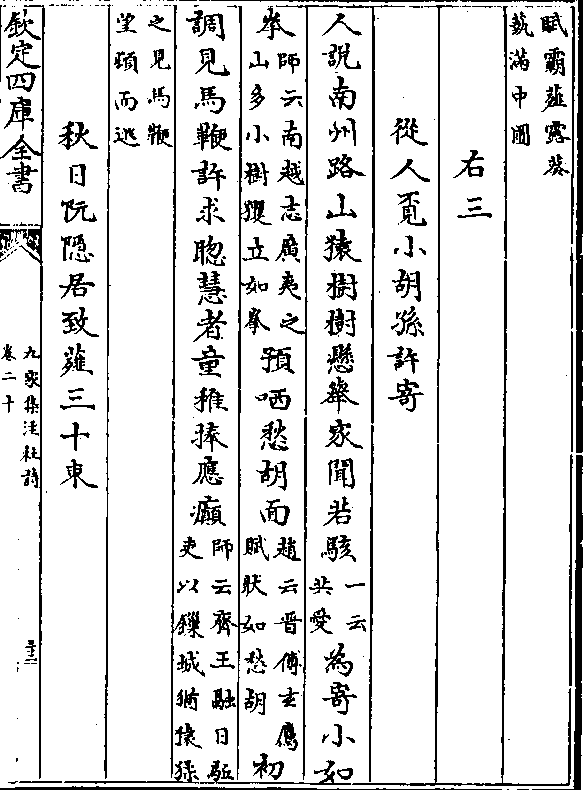 賦霸䪥露葵
甤滿中園
右三
從人覓小胡孫許寄
人説南州路山猿樹樹懸舉家聞若駭一云共愛為寄小如
拳師云南越志廣夷之山多小樹玃立如拳預哂愁胡面趙云晋傅玄鷹賦狀如愁胡初
調見馬鞭許求聰慧者童稚捧應癲師云齊王融曰駈吏以鏁城猶猿猱
之見馬鞭
望頭而逃
秋日阮隠居致薤三十束
欽定四庫全書
九家集注杜詩
卷二十
三十二